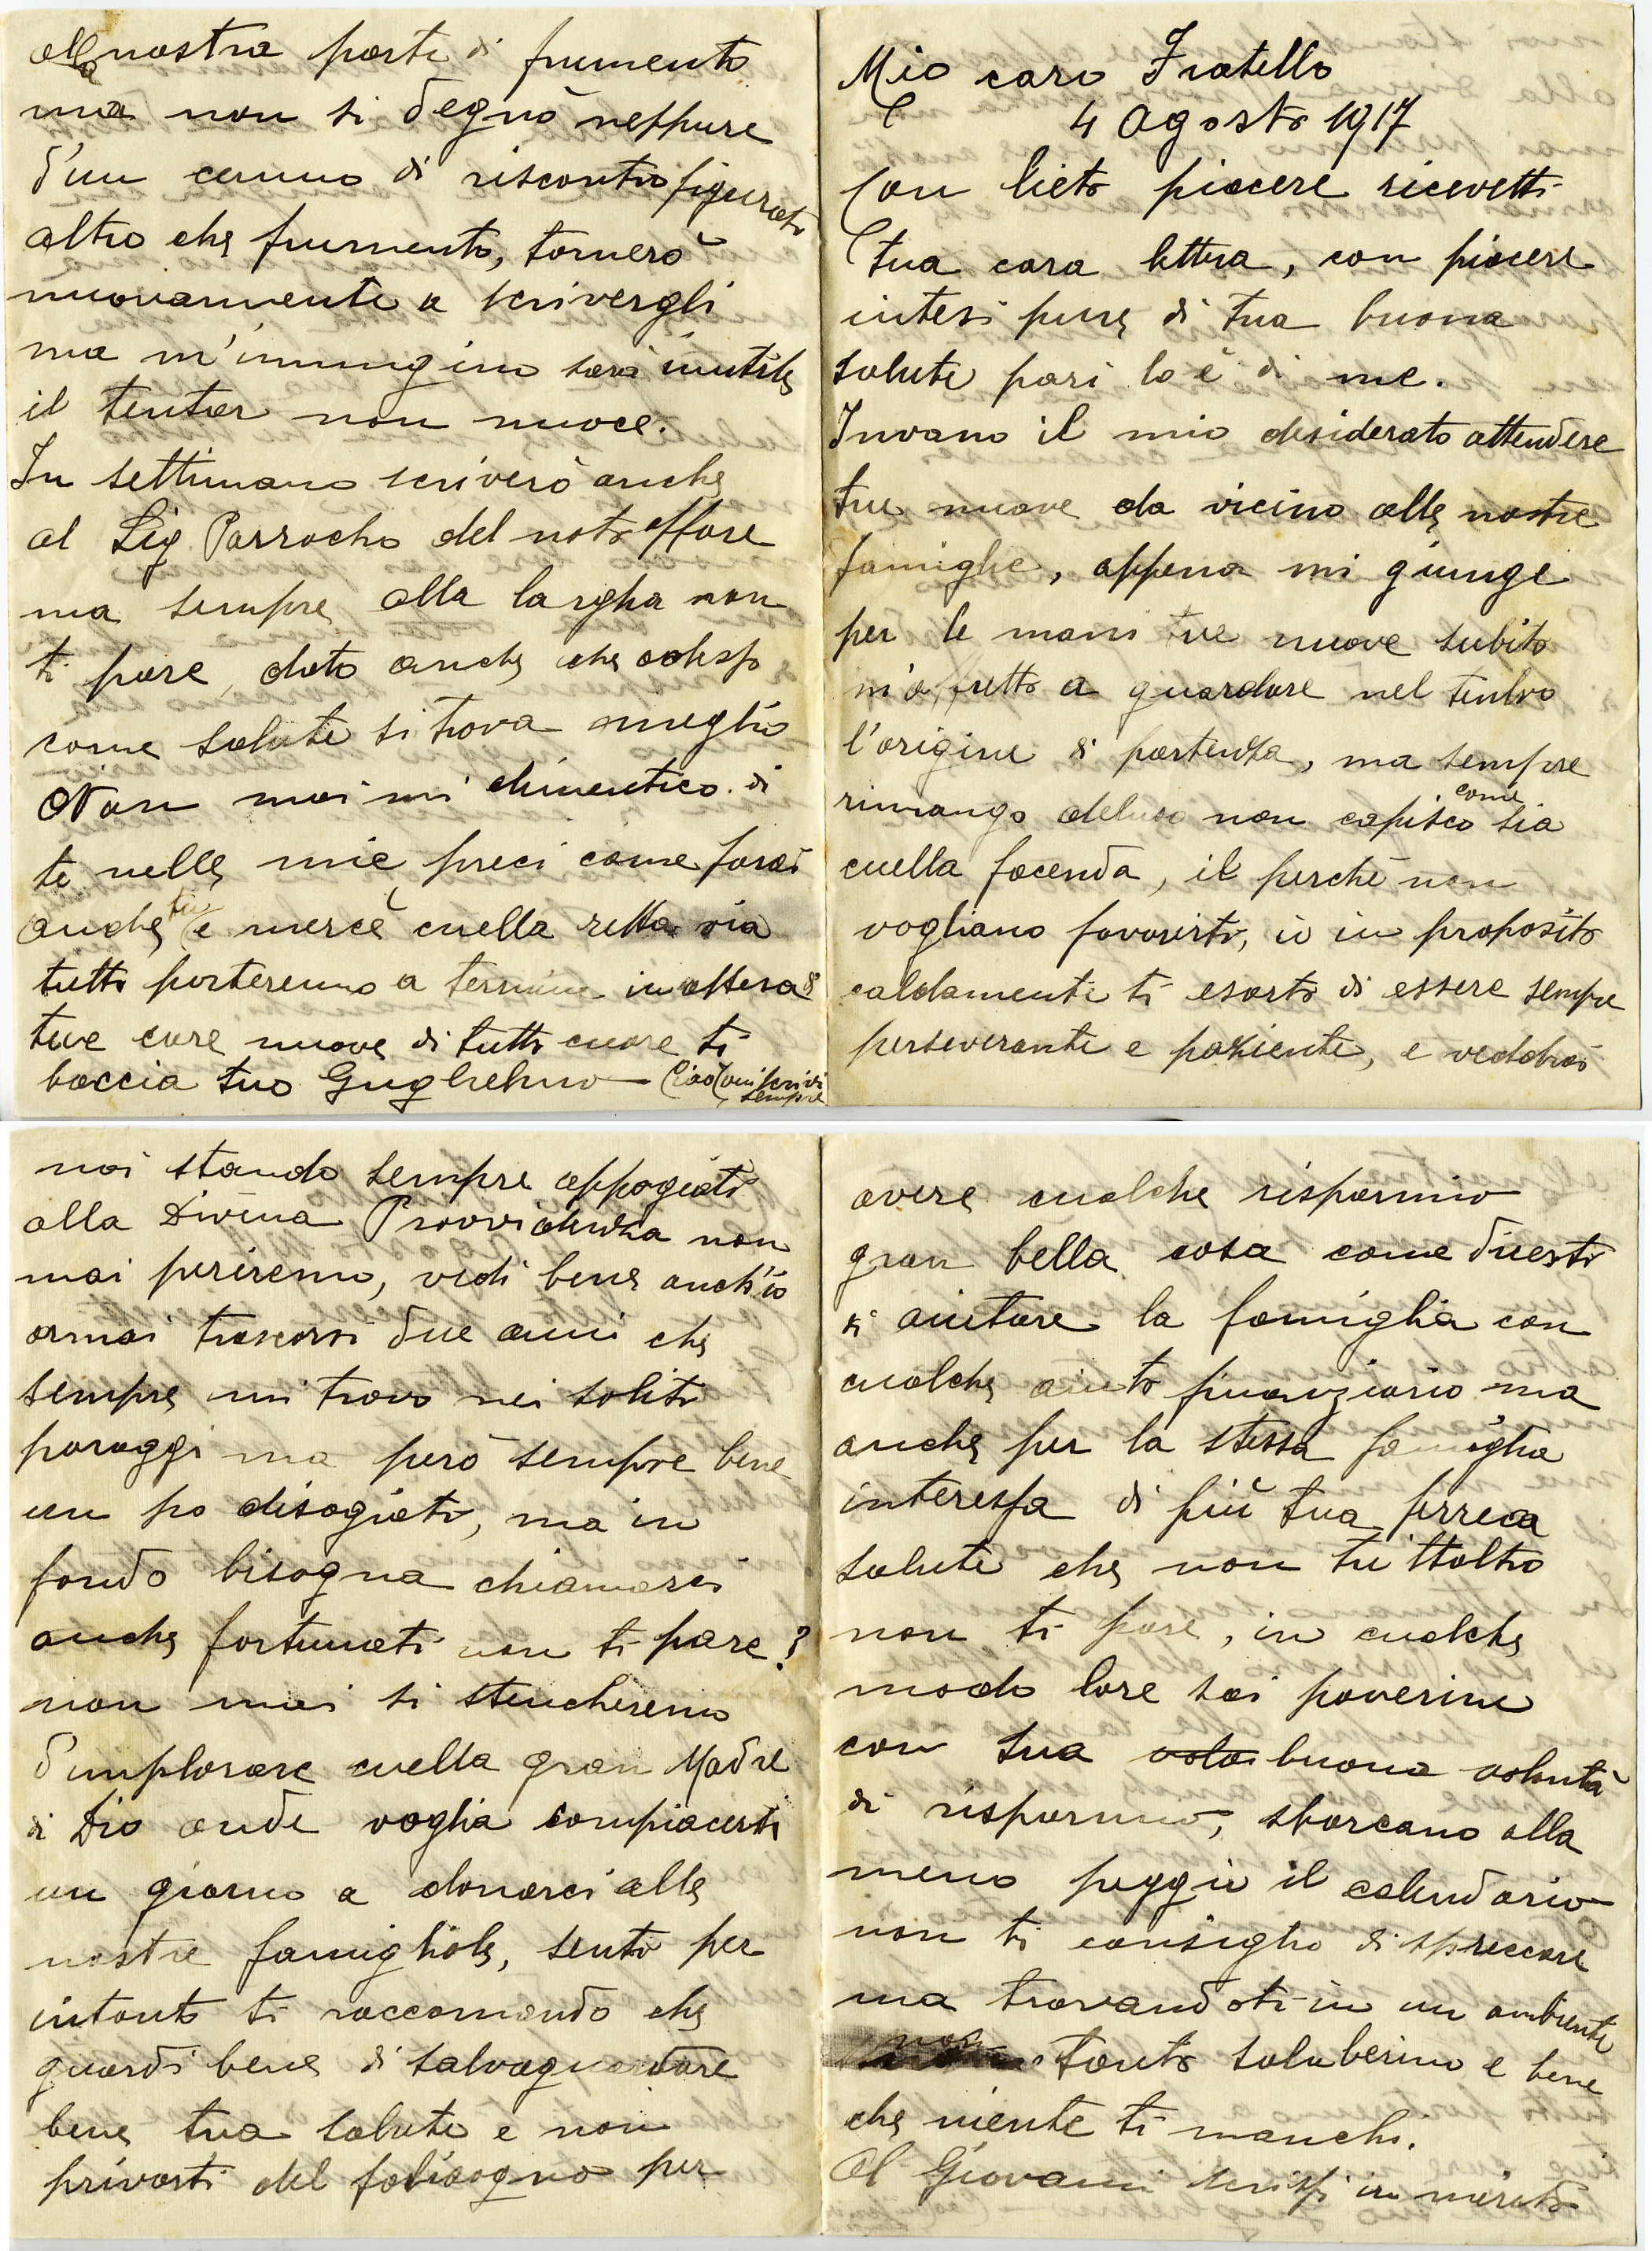 Mio caro Fratello
4 Agosto 1917
Con lieto piacere ricevetti
tua cara lettera, con piacere
intesi pure di tua buona
salute pari lo è di me.
Invano il mio desiderato attendere
tue nuove da vicino alle nostre
famiglie, appena mi giunge
per le mani tue nuove subito
m'affretto a guardare nel timbro
l'origine di partenza, ma sempre
rimango deluso non capisco come sia
cuella facenda, il perchè non
vogliano favorirti, io in proposito
caldamente ti esorto di essere sempre
perseverante e paziente, e veddrai
noi stando sempre appogiati
alla Divina Provvidenza non
mai periremo, vedi bene anch'io
ormai trascorsi due anni che
sempre mi trovo nei soliti
paraggi ma però sempre bene
un po disagiati, ma in
fondo bisogna chiamarsi
anche fortunati non ti pare?
non mai si stancheremo
d'implorare cuella gran Madre
di Dio onde voglia compiacersi
un giorno a donarci alle
nostre famigliole, senti per
intanto ti raccomando che
guardi bene di salvaguardare
bene tua salute e non
privarti del fabisogno per
avere cualche risparmio
gran bella cosa come dicesti
di aiutare la famiglia con
cualche aiuto finanziario ma
anche per la stessa famiglia
interessa di più tua ferrea
salute che non tutt'altro
non ti pare, in cualche
modo lore sai poverine
con sua volo buona volontà
di risparmio, sbarcano alla
meno peggio il calendario
non ti consiglio di spreccare
ma trovandoti in un ambiente
non tanto saluberimo e bene
che niente ti manchi.
Al Giovanni scrissi in merito
alla nostra parte di frumento
ma non si degnò neppure
d'un cenno di riscontro figurati
altro che frumento, tornerò
nuovamente a scrivergli
ma m'immagino sarà inutile
il tentar non nuoce.
In settimana scriverò anche
al Sig Parrocho del noto affare
ma sempre alla largha non
ti pare, dato anche che adesso
come salute si trova meglio
Non mai mi dimentico di
te nelle mie preci come farai
anche tu e mercè cuella retta via
tutto porteremo a termine in attesa di
tue care nuove di tutto cuore ti
baccia tuo Guglielmo Ciao scrivi
sempre